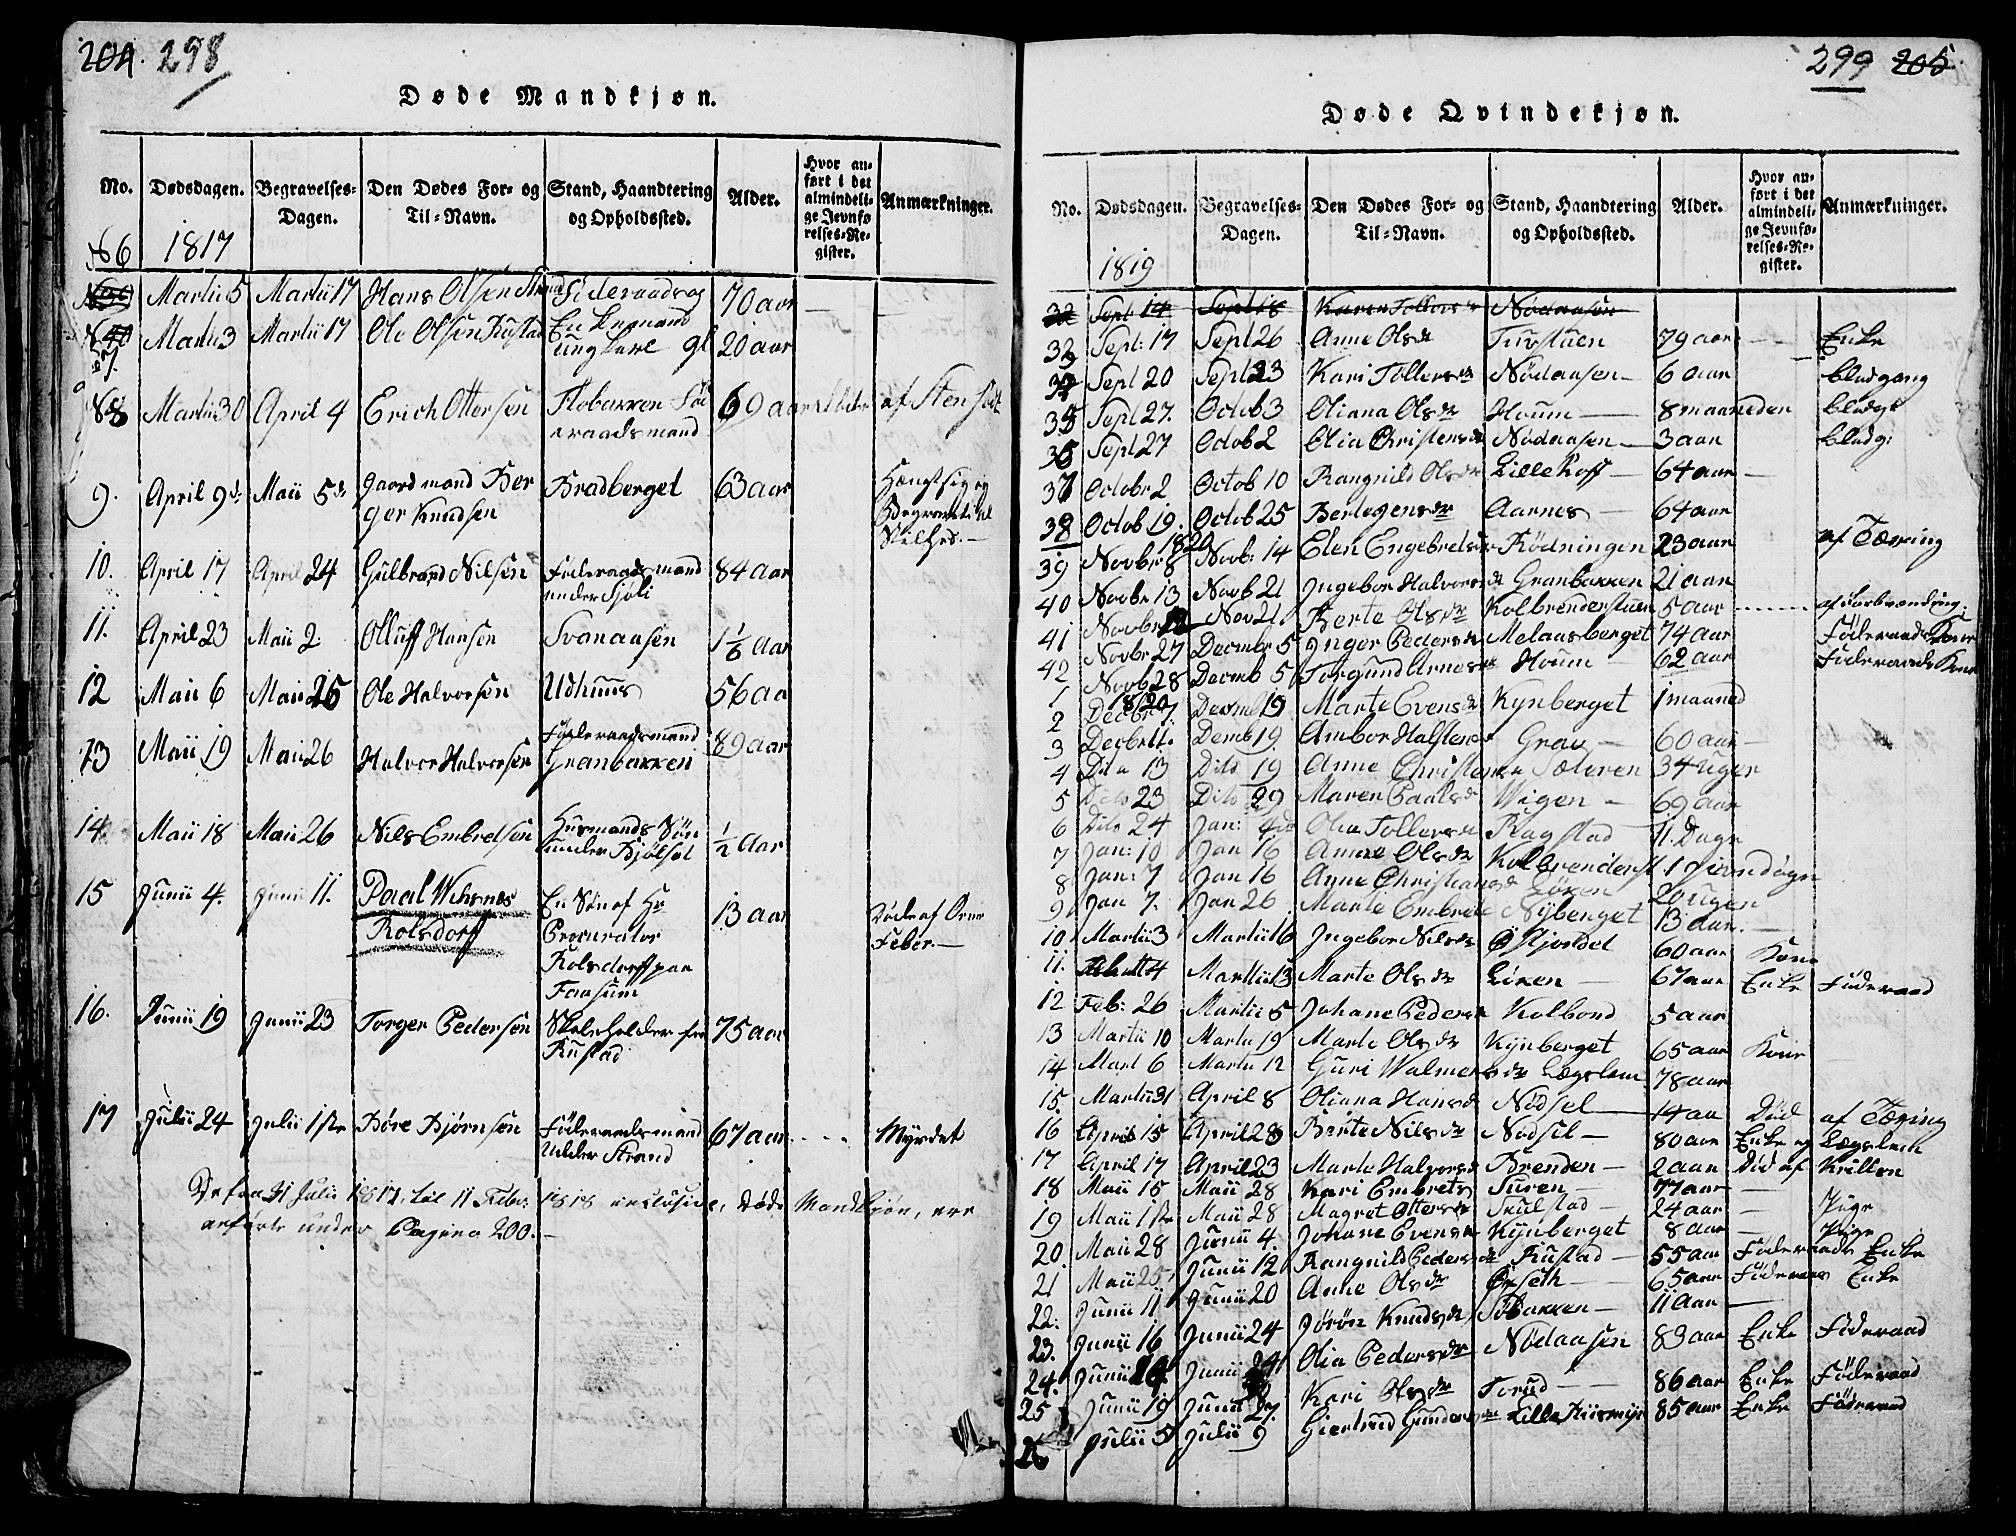 204. 298
Døde Mandkjøn.
No. Dødsdagen. Begravelses-Dagen. Den Dødes For- og Til-Navn. Stand, Haandtering og Opholdssted. Alder. Hvor anført i det almindelige Jevnførelses-Register. Anmærkninger.
No 6 1817
Martii 5 Martii 17 Hans Olsen Strand Föderaads og Enkemand 70 aar
7. Martii 3 Martii 17 Ole Olsen Rustad ung karl 20 aar
No 8 Martii 30 April 4 Erich Ottersen Flobakken Föderaadsmand 69 aar af Stensott
9. April 9de Maii 5de Gaardmand Berger Knudsen Bradberget 63 aar Hængt sig og Begravet i al Stilhed.
10. April 17 April 24 Gulbrand Nilsen Föderaadsmand under Sjöli 84 aar
11. April 23 Maii 2. Olluff Hansen Svanaasen 1 1/6 aar
12 Maii 6 Maii 25 Ole Halvorsen Udhuus 56 aa
13 Maii 19 Maii 26 Halvor Halvorsen Föderaadsmand Granbakken 89 aar
14 Maii 18 Maii 26 Nils Embretsen Husmands Sön under Bjölset 1/2 Aar
15 Junii 4. Junii 11. Paal Wihsnes Rolsdorff En Sön af Hr Procurator Rolsdorff paa Faasum 13 aar Döde af Orm Feber.
16. Junii 19 Junii 23 Torger Pedersen Skoleholder fra Rustad 75 aar
17 Julii 24 Julii 1ste Böre Björnsen Föderaadsmand Udder Strand 67 aar Myrdet
De fra 31 Julii 1817, til 11 Febr. 1818 inclusive, Döde Mandkjön, ere
anförte under Pagina 200.
299 205.
Døde Qvindekjøn.
No. Dødsdagen. Begravelses-Dagen. Den Dødes For- og Til-Navn. Stand, Haandtering og Opholdssted. Alder. Hvor anført i det almindelige Jevnførelses-Register. Anmærkninger.
1819
32 Sept 14 Sept 18 Karen Tollersdr Nödaasen
32 Sept: 17 Sept 26 Anne Olsdr Turstuen 79 aar Enke
Sept 20 Sept 23 Kari Tollersdr Nödaasen 6 aar blodgang
35 Sept 27. Octob 3 Oliana Olsdr Houm 8 maaneden blodgt
36 Sept 27 Octob 2 Olia Christensdr Nödaasen 3 aar blodg:
37 Octobr 2 Octob 10 Rangnild Olsdr Lille Koss 64 aar
38 Octob 19. Octob 25 Bertegensdr Aarnes 64 aar
39 Novbr 8 1820 Novbr. 14 Elen Engebretsdr Rödningen 23 aar af Tæring
40 Novbr 13 Novb 21 Ingebor Halvorsdr Granbakken 21 aar
41 Novbr 12 Nov 21. Berte Olsdr Kolbrenderstuen 5 aar af forbrænding:
42 Novbr 27 Decmbr 5 Inger Pedersdr Melaasberget 74 aar Föderaads Kone
Novb 28 Decmb 5 Torgund Arnesdr Houm 62 aar Föderaads Kone
1 1820
2 Decbr 7. Decmb 19 Marte Evensdr Kynberget 1 maaned
3 Decbr 11. Demb 19. Ambor Halstensdr Grav 60 aar
4 Dito 13 Dito 19 Anne Christensdr Sæteren 34 uger
5 Dito 23 Dito 29 Maren Paalsdr Wigen 69 aar
6 Dito 24 Jan: 4de Olea Tollersdr Rogstad 11. Dage
7 Jan: 10 Jan 16 Anne Olsdr Kolbrenderst 1 Hiemdøpt
8 Jan: 7 Jan 16 Anne Christiansdr Löken 20 ugen
9 Jan 7. Jan 26 Marte Embretsdr Nyberget 13 aar.
10 Martii 3 Martii 16 Ingebor Nilsdr Östjordet 60 aar Kone
11. 4 Martii 13 Marte Olsdr Löken 67 aar Enke Föderaad
12 Feb: 26 Martii 5 Johane Pedersdr Kolbond 5 aar
13 Martii 10 Martii 19 Marte Olsdr Kynberget 65 aar Kone
14 Mart 6 Martii 12 Guri Walmersdr Lægslem 78 aar
15. Martii 31 April 8 Oliana Hansdr Nödsel 14 aar Död af Tæring
16 April 15 April 28 Berte Nilsdr Nodsel 80 aar Enke og Lægslem
17 April 17 April 23 Marte Halvorsdr Brenden 2 aar Död af Krillen
18 Maii 15 Maii 28 Kari Embretsdr Turen 77 aar
19 Maii 1ste Maii 28 Magret Ottersdr Sculstad 24 aar Pige
20. Maii 28 Junii 4. Johane Evensdr Kynberget 8 aar Pige
21 Maii 25 Junii 12 Rangnild Pedersdr Rustad 55 aar Föderaads Enke
22: Junii 11 Junii 20 Anne Olsdr Örseth 65 aar Föderaads Enke
23. Junii 16 Junii 24 Jörön Knudsdr Tobakken 11 aar
24. Junii 14. Junii 24 Olia Pedersdr Nödaasen 83 aar Enke Föderaad
25 Junii 19 Junii 27. Kari Olsdr Torud 86 aar Enke Föderaad
26 Julii 5 Julii 9 Giertrud Gundersdr Lille Riismyr 85 aar Enke Föderaad